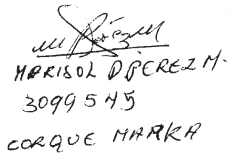 MARISOL D PEREZ M.
3099545
CORQUE MARKA